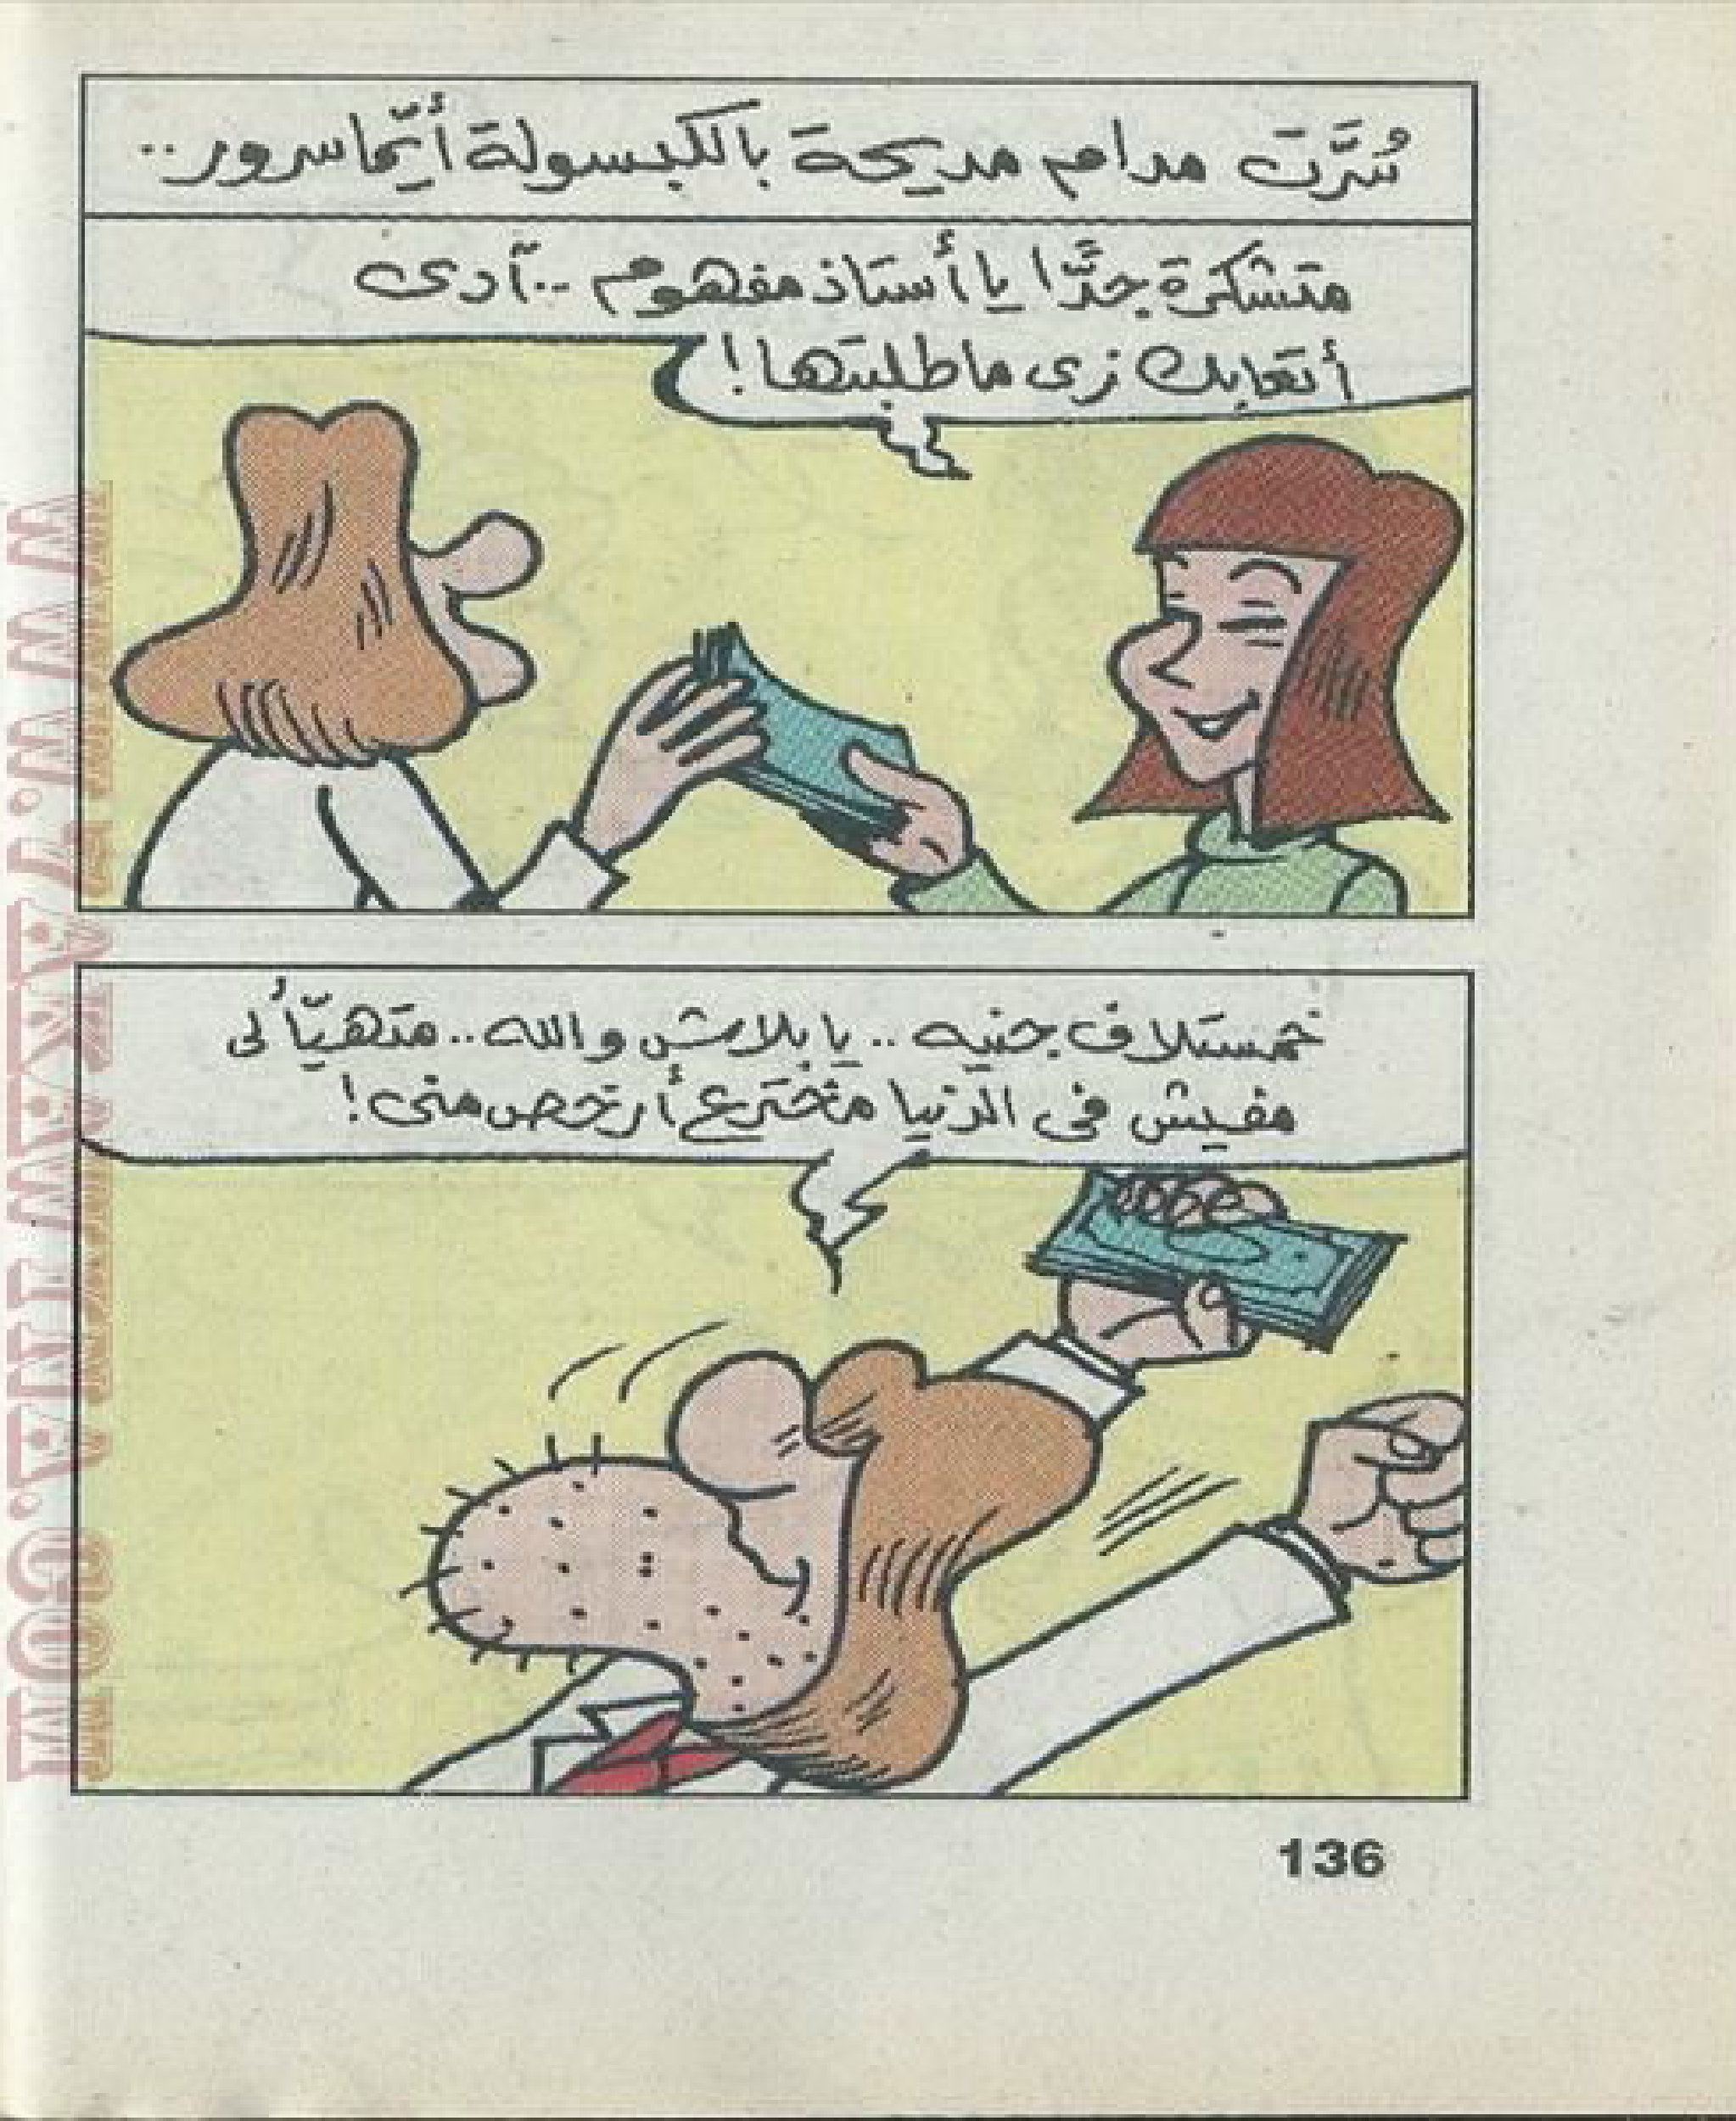 سُرَّت مدام مديحة بالكبسولة أيَّما سرور..
متشكرة جدًّا يا أستاذ مفهوم ..آدى
أتعابك زى ما طلبتها!
خمستلاف جنيه .. يا بلاش والله.. متهيّألى
مفيش فى الدنيا مخترع أرخص منى!
136
WWW.ARABCOMICS